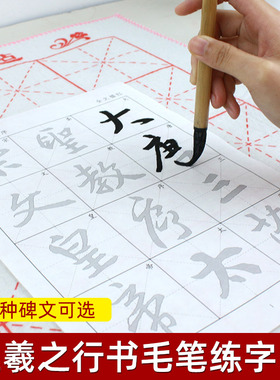 大唐三
聖教序太
宗文皇帝
种碑文可选
羲之行书毛笔练字